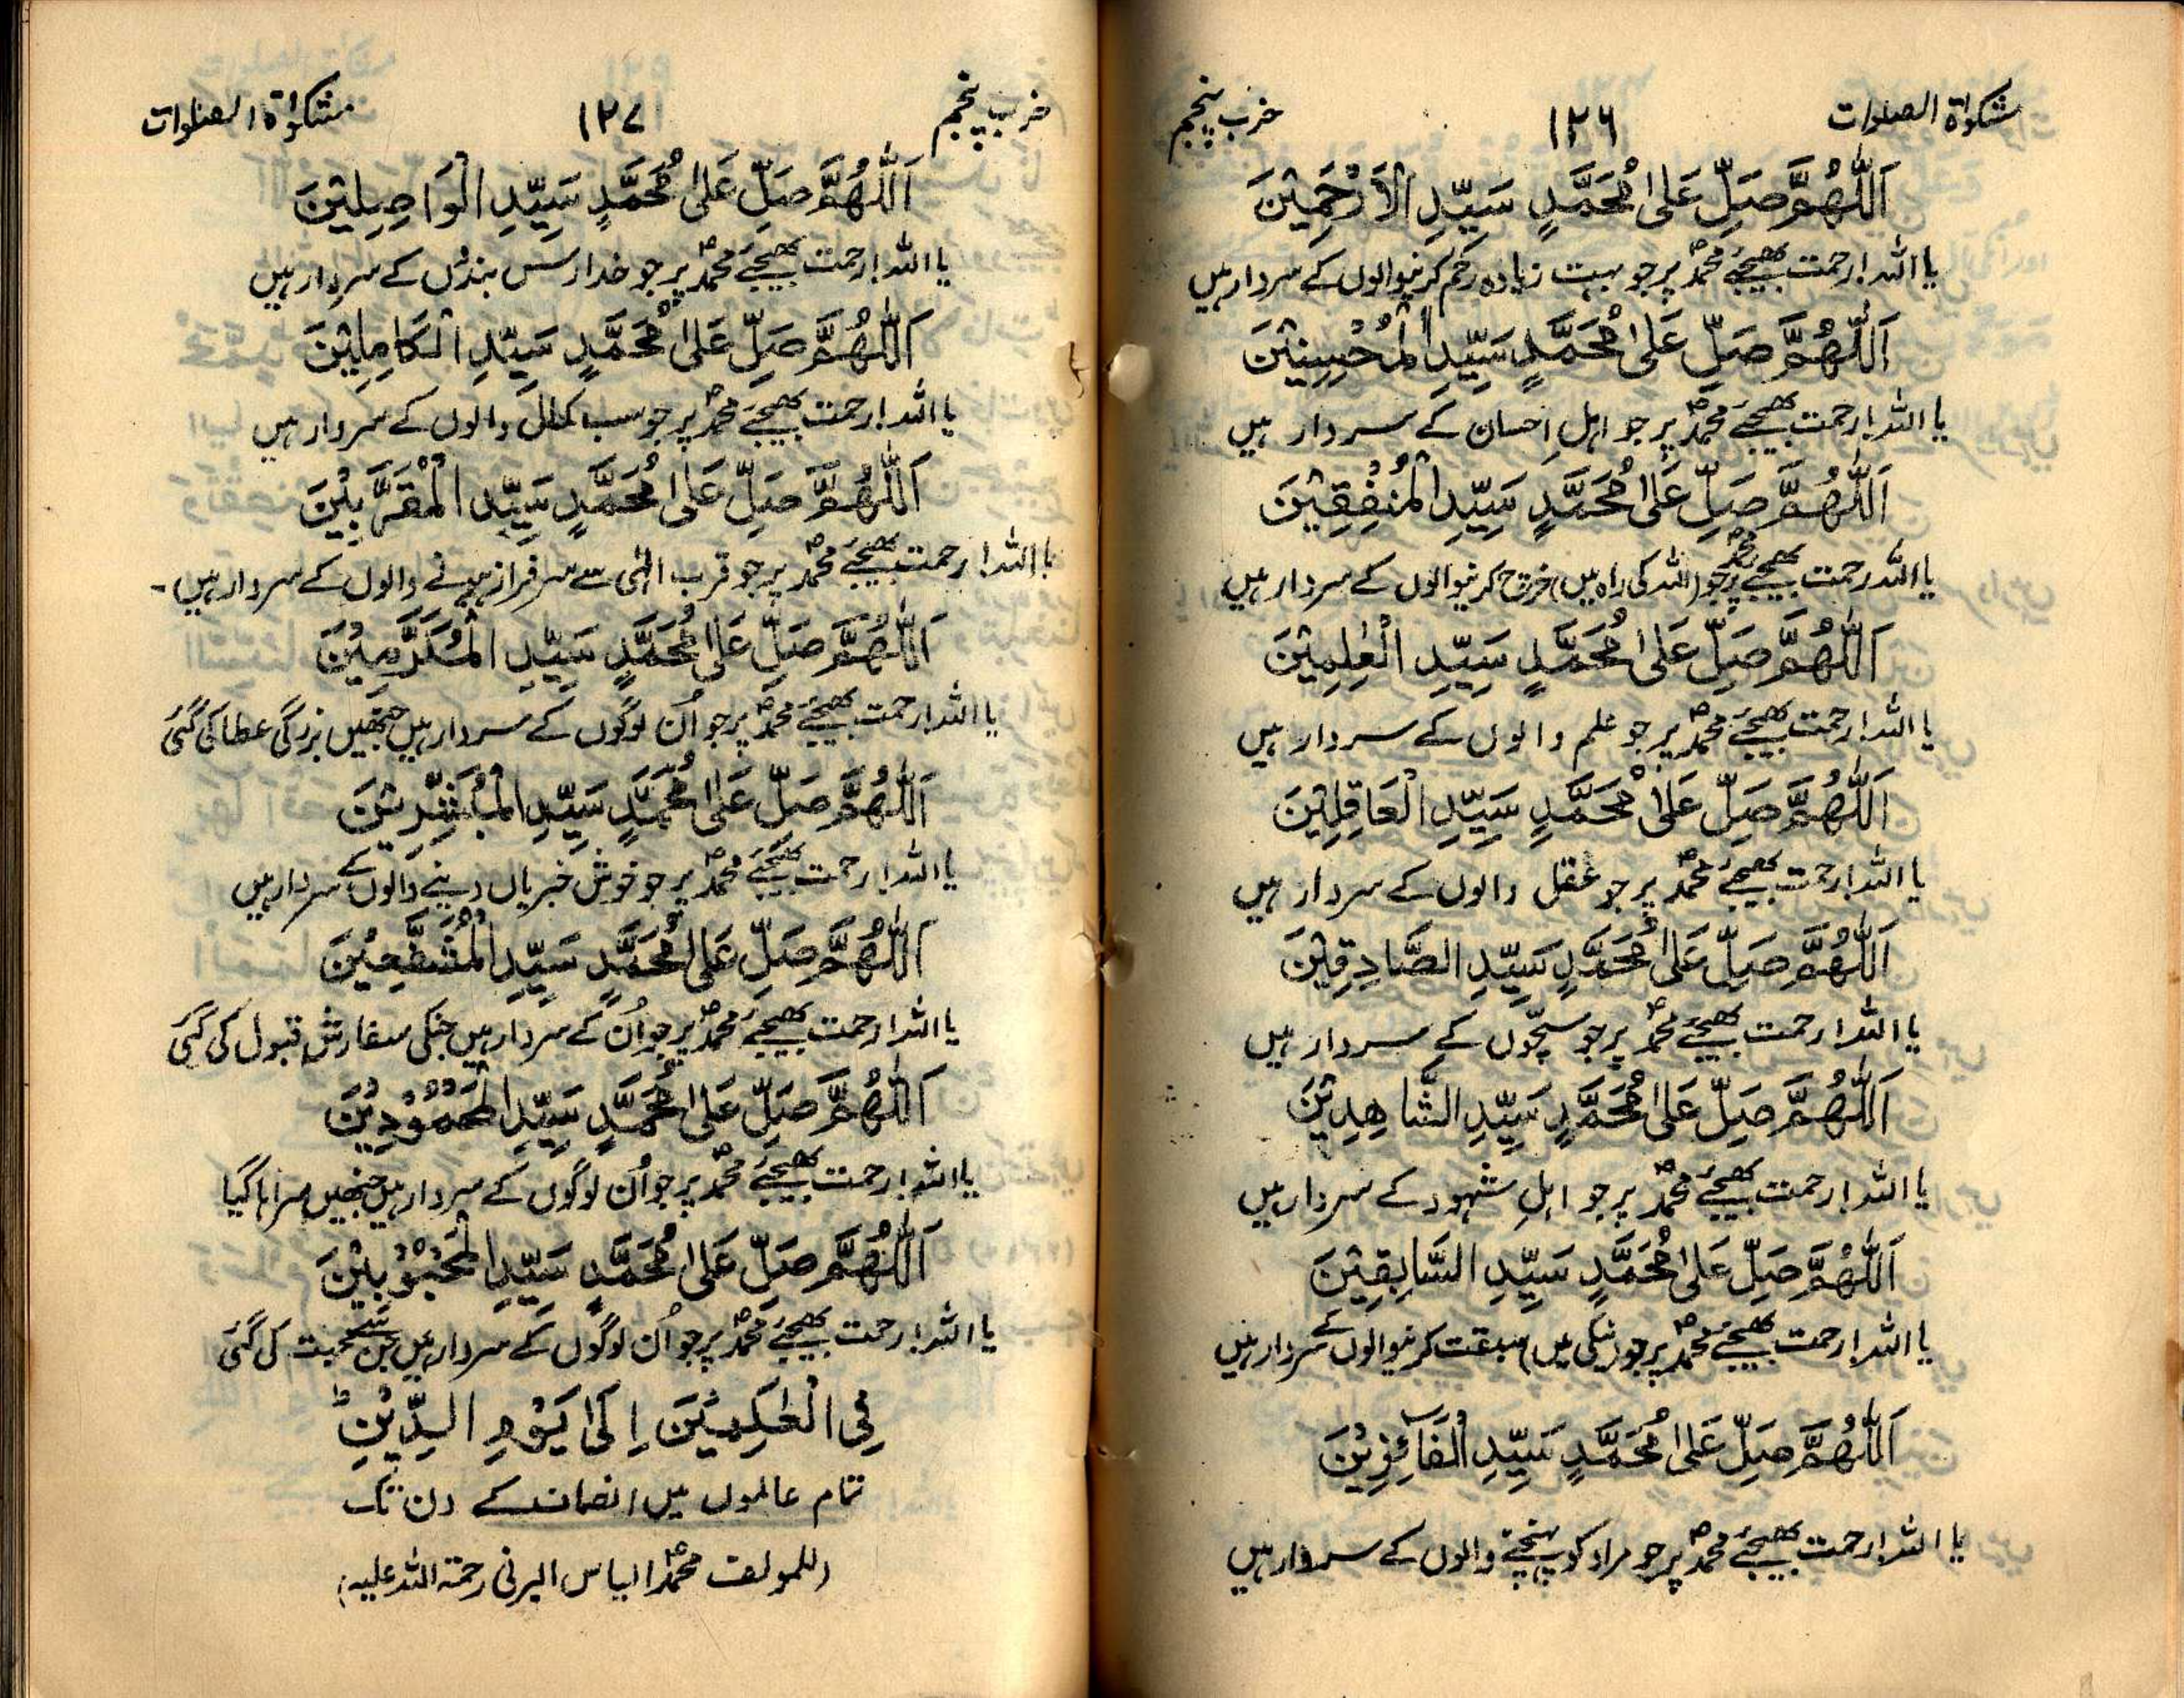 مشکوٰۃ الصلوات ۱۲۶ حزب پنجم
اَللّٰهُمَّ صَلِّ عَلٰى مُحَمَّدٍ سَيِّدِ الْاَرْحَمِيْنَ
یا اللہ! رحمت بھیجئے محمدؐ پر جو بہت زیادہ رحم کرنیوالوں کے سردار ہیں
اَللّٰهُمَّ صَلِّ عَلٰى مُحَمَّدٍ سَيِّدِ الْمُحْسِنِيْنَ
یا اللہ! رحمت بھیجئے محمدؐ پر جو اہلِ احسان کے سردار ہیں
اَللّٰهُمَّ صَلِّ عَلٰى مُحَمَّدٍ سَيِّدِ الْمُنْفِقِيْنَ
یا اللہ رحمت بھیجئے محمدؐ پر جو (اللہ کی راہ میں) خرچ کرنیوالوں کے سردار ہیں
اَللّٰهُمَّ صَلِّ عَلٰى مُحَمَّدٍ سَيِّدِ الْعٰلِمِيْنَ
یا اللہ! رحمت بھیجئے محمدؐ پر جو علم والوں کے سردار ہیں
اَللّٰهُمَّ صَلِّ عَلٰى مُحَمَّدٍ سَيِّدِ الْعَاقِلِيْنَ
یا اللہ! رحمت بھیجئے محمدؐ پر جو عقل والوں کے سردار ہیں
اَللّٰهُمَّ صَلِّ عَلٰى مُحَمَّدٍ سَيِّدِ الصَّادِقِيْنَ
یا اللہ! رحمت بھیجئے محمدؐ پر جو سچّوں کے سردار ہیں
اَللّٰهُمَّ صَلِّ عَلٰى مُحَمَّدٍ سَيِّدِ الشَّاهِدِيْنَ
یا اللہ! رحمت بھیجئے محمدؐ پر جو اہلِ شہود کے سردار ہیں
اَللّٰهُمَّ صَلِّ عَلٰى مُحَمَّدٍ سَيِّدِ السَّابِقِيْنَ
یا اللہ! رحمت بھیجئے محمدؐ پر جو (نیکی میں) سبقت کرنیوالوں کے سردار ہیں
اَللّٰهُمَّ صَلِّ عَلٰى مُحَمَّدٍ سَيِّدِ الْفَآئِزِيْنَ
یا اللہ! رحمت بھیجئے محمدؐ پر جو مراد کو پہنچنے والوں کے سردار ہیں
حزب پنجم ۱۲۷ مشکوٰۃ الصلوات
اَللّٰهُمَّ صَلِّ عَلٰى مُحَمَّدٍ سَيِّدِ الْوَاصِلِيْنَ
یا اللہ! رحمت بھیجئے محمدؐ پر جو خدا رسس بندوں کے سردار ہیں
اَللّٰهُمَّ صَلِّ عَلٰى مُحَمَّدٍ سَيِّدِ الْكَامِلِيْنَ
یا اللہ! رحمت بھیجئے محمدؐ پر جو سب کمال والوں کے سردار ہیں
اَللّٰهُمَّ صَلِّ عَلٰى مُحَمَّدٍ سَيِّدِ الْمُقَرَّبِيْنَ
یا اللہ! رحمت بھیجئے محمدؐ پر جو قرب الٰہی سے سرفراز ہونے والوں کے سردار ہیں۔
اَللّٰهُمَّ صَلِّ عَلٰى مُحَمَّدٍ سَيِّدِ الْمُكَرَّمِيْنَ
یا اللہ! رحمت بھیجئے محمدؐ پر جو اُن لوگوں کے سردار ہیں جنھیں بزرگی عطا کی گئی
اَللّٰهُمَّ صَلِّ عَلٰى مُحَمَّدٍ سَيِّدِ الْمُبَشِّرِيْنَ
یا اللہ! رحمت بھیجئے محمدؐ پر جو خوش خبریاں دینے والوں کے سردار ہیں
اَللّٰهُمَّ صَلِّ عَلٰى مُحَمَّدٍ سَيِّدِ الْمُشَفَّعِيْنَ
یا اللہ! رحمت بھیجئے محمدؐ پر جو اُن کے سردار ہیں جنکی سفارش قبول کی گئی
اَللّٰهُمَّ صَلِّ عَلٰى مُحَمَّدٍ سَيِّدِ الْمَحْمُوْدِيْنَ
یا اللہ! رحمت بھیجئے محمدؐ پر جو اُن لوگوں کے سردار ہیں جنھیں سراہا گیا
اَللّٰهُمَّ صَلِّ عَلٰى مُحَمَّدٍ سَيِّدِ الْمَحْبُوْبِيْنَ
یا اللہ! رحمت بھیجئے محمدؐ پر جو اُن لوگوں کے سردار ہیں جن سے محبت کی گئی
فِى الْعٰلَمِيْنَ اِلٰى يَوْمِ الدِّيْنِ ط
تمام عالموں میں انصاف کے دن تک
(للمولف محمدؐ الیاس البرنی رحمۃ اللہ علیہ)